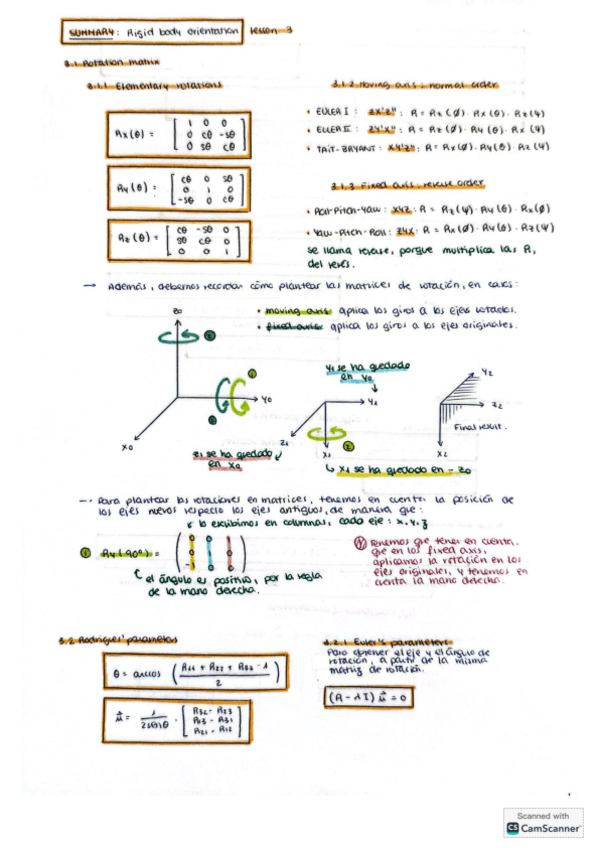 SUMMARY: Rigid body orientation lesson 3
3.1 Rotation matrix
3.1.1 Elementary rotations
Rx(θ) = [ 1 0 0
0 cθ -sθ
0 sθ cθ ]
Ry(θ) = [ cθ 0 sθ
0 1 0
-sθ 0 cθ ]
Rz(θ) = [ cθ -sθ 0
sθ cθ 0
0 0 1 ]
3.1.2 Moving axis: normal order
• EULER I: ZX'Z'': R = Rz(ø)·Rx(θ)·Rz(ψ)
• EULER II: ZY'X'': R = Rz(ø)·Ry(θ)·Rx(ψ)
• TAIT-BRYANT: XY'Z'': R = Rx(ø)·Ry(θ)·Rz(ψ)
3.1.3 Fixed axis: reverse order
• Roll-Pitch-Yaw: XYZ: R = Rz(ψ)·Ry(θ)·Rx(ø)
• Yaw-Pitch-Roll: ZYX: R = Rx(ø)·Ry(θ)·Rz(ψ)
se llama reverse, porque multiplica las R,
del revés.
→ Además, debemos recordar cómo plantear las matrices de rotación, en casos:
• moving axis: aplica los giros a los ejes rotados.
• fixed axis: aplica los giros a los ejes originales.
z0
y0
x0
1
z1 se ha quedado
en x0
y1 se ha quedado
en y0
y1
z1
x1
2
x1 se ha quedado en -z0
y2
z2
x2
Final result.
→ Para plantear las rotaciones en matrices, tenemos en cuenta la posición de
los ejes nuevos respecto los ejes antiguos, de manera que:
lo escribimos en columnas, cada eje: x, y, z
1 Ry(90º) = ( 0 0 1
0 1 0
-1 0 0 )
el ángulo es positivo, por la regla
de la mano derecha.
Tenemos que tener en cuenta,
que en los fixed axis,
aplicamos la rotación en los
ejes originales, y tenemos en
cuenta la mano derecha.
3.2 Rodrigues' parameters
θ = arccos ( R11 + R22 + R33 - 1 / 2 )
û = 1 / 2senθ · [ R32 - R23
R13 - R31
R21 - R12 ]
3.2.1 Euler's parameters
Para obtener el eje y el ángulo de
rotación, a partir de la misma
matriz de rotación.
(R - λI) û = 0
Scanned with
CS CamScanner